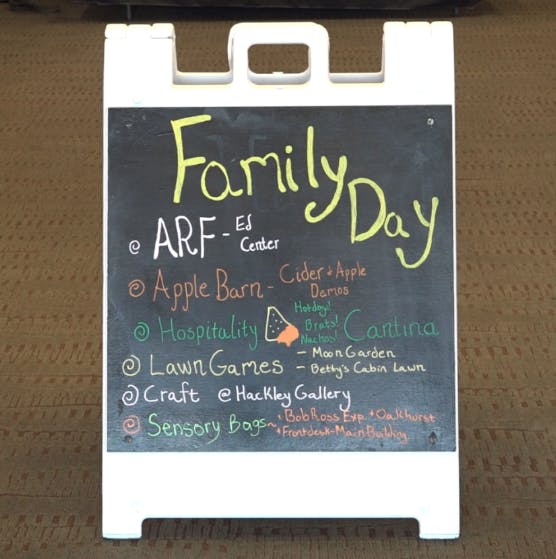 Family
Day
ARF - Ed
Center
Apple Barn - Cider + Apple
Demos
Hospitality Hotdogs! Cantina
Brats!
Nachos!
Lawn Games - Moon Garden
- Betty's Cabin Lawn
Craft @ Hackley Gallery
Sensory Bags ~ + Bob Ross Exp. + Oakhurst
+ Frontdesk - Main Building